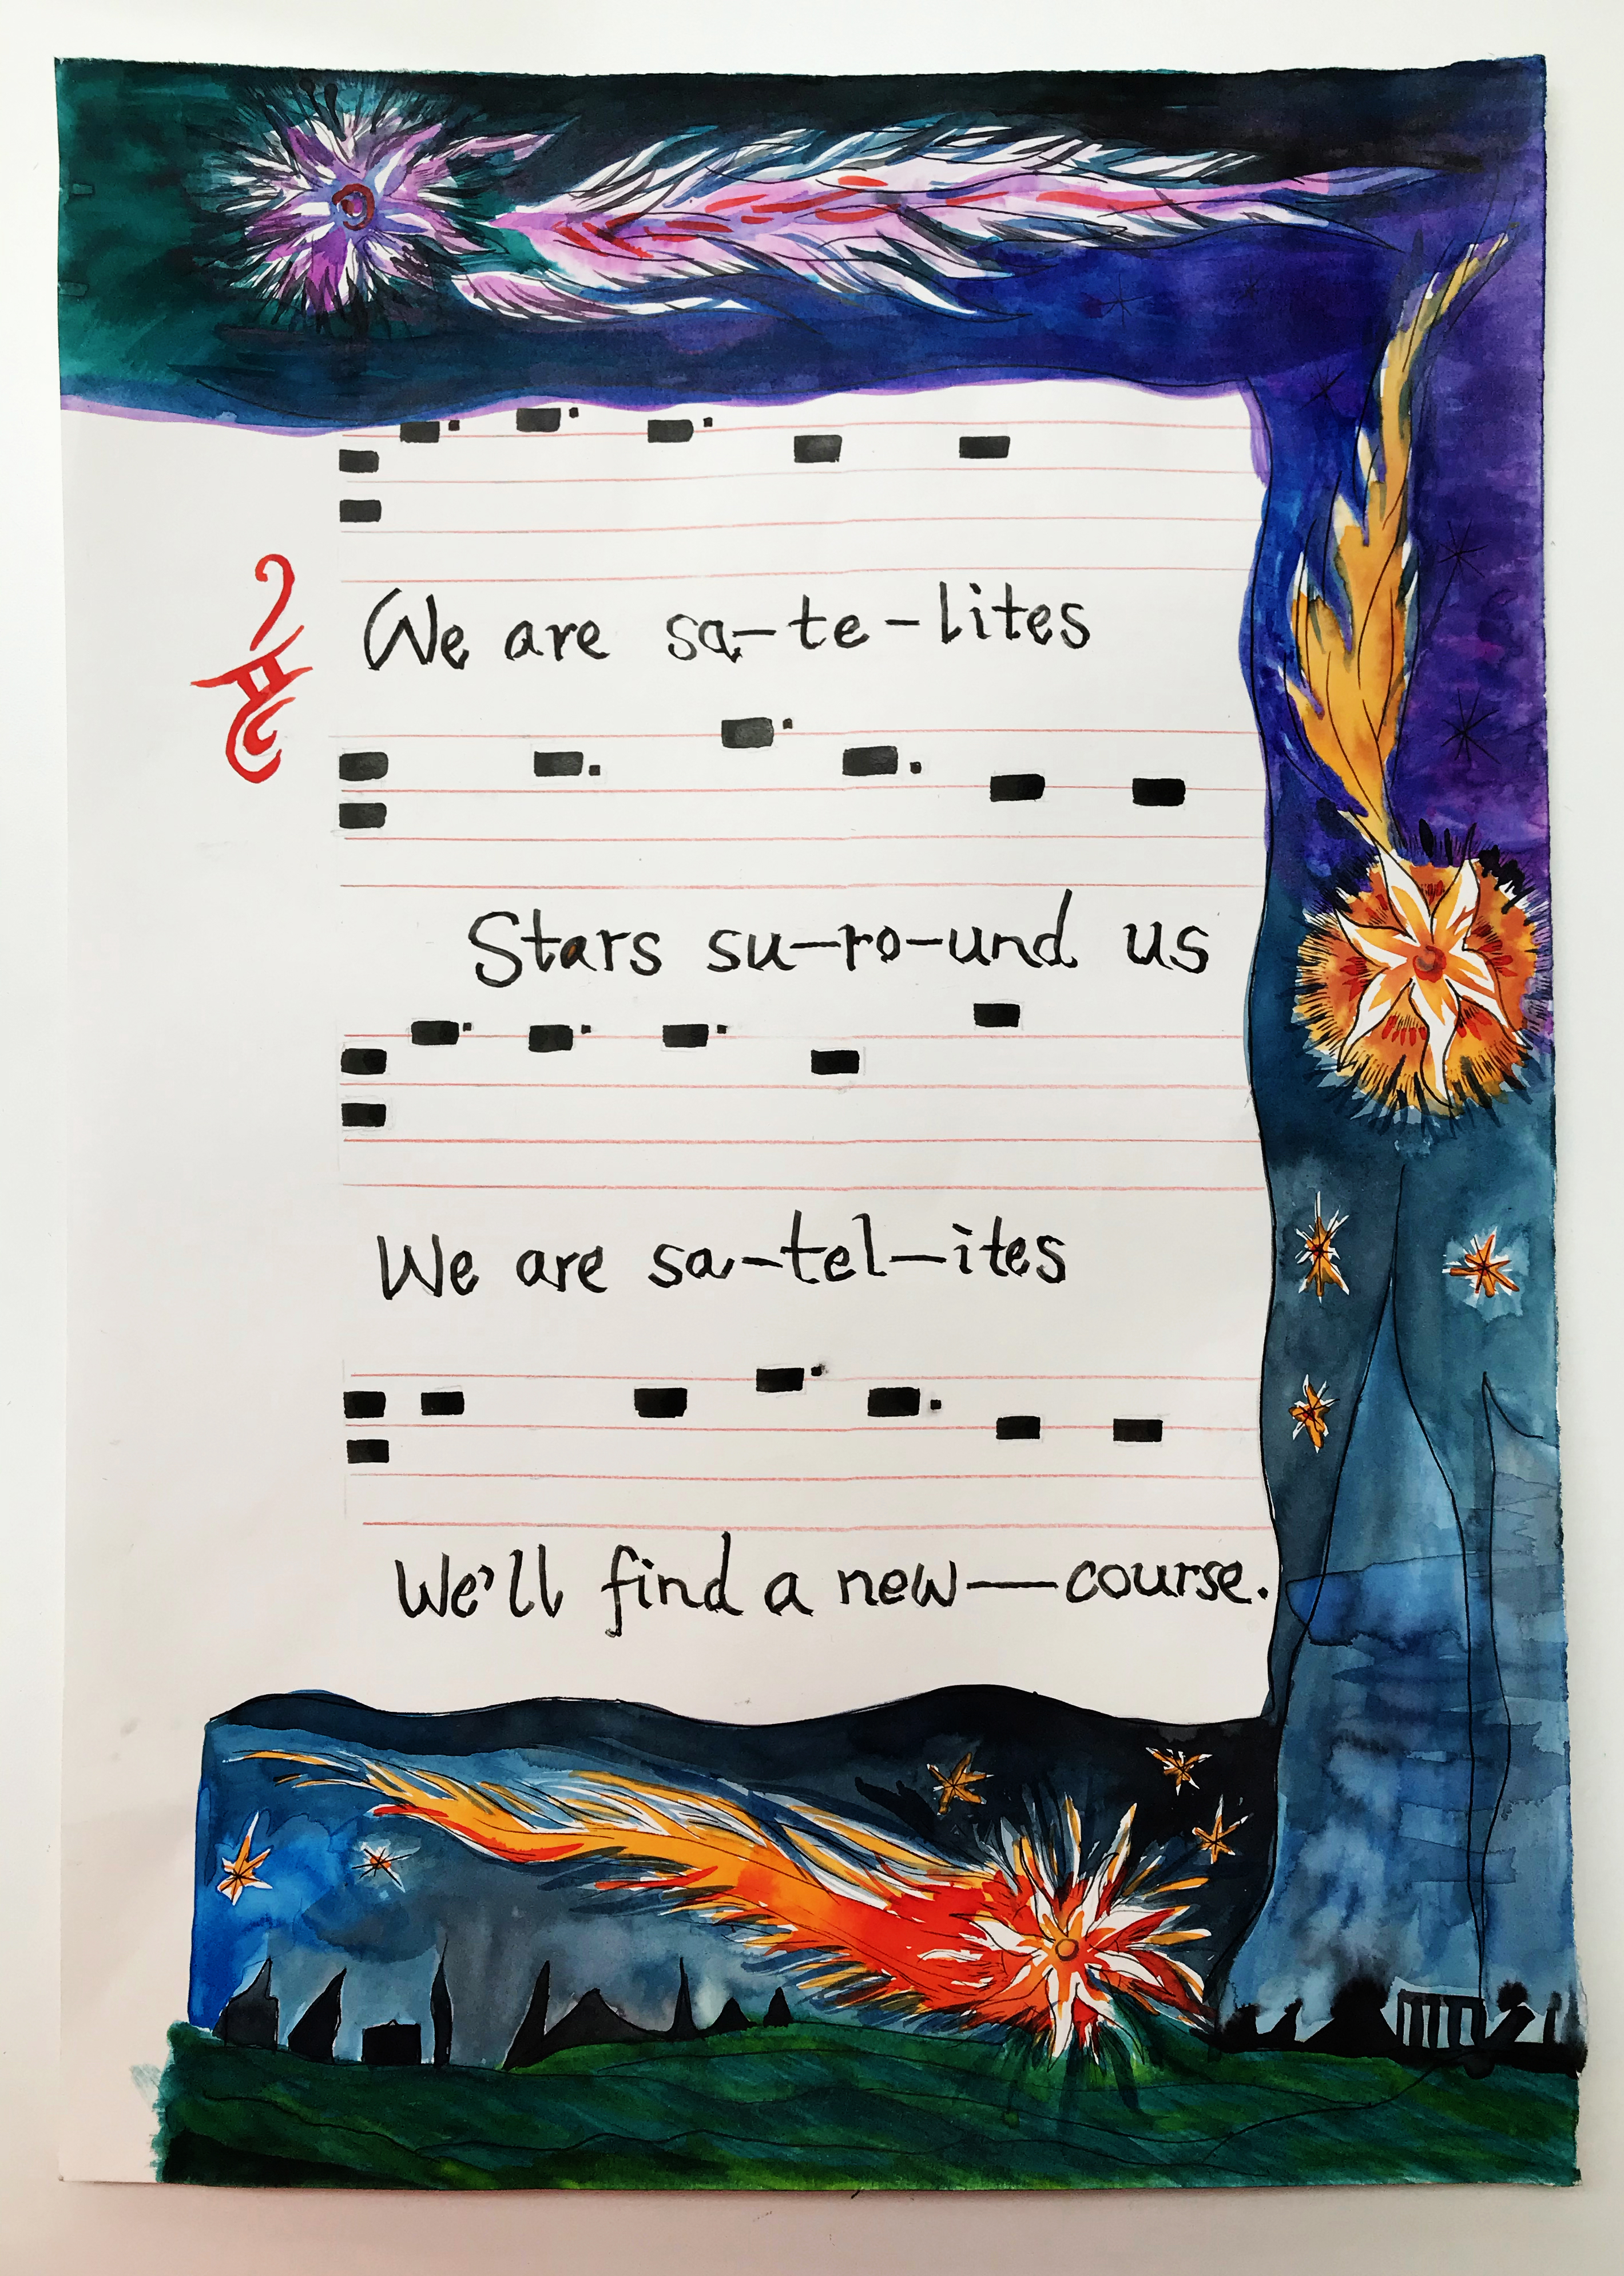 We are sa-te-lites
Stars su-ro-und us
We are sa-tel-ites
We'll find a new—course.